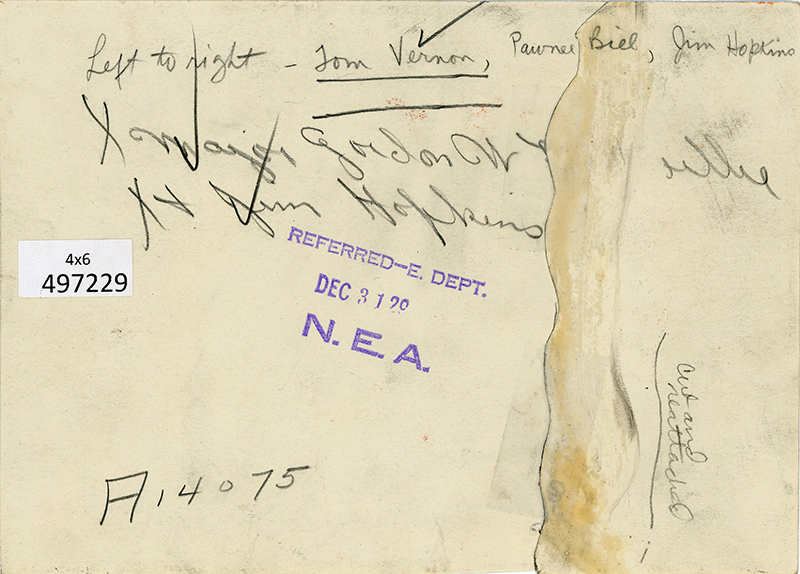 Left to right – Tom Vernon, Pawnee Bill, Jim Hopkins
X Gordon W Lillie
X Jim Hopkins
4x6
497229
REFERRED—E. DEPT.
DEC 31 29
N.E.A.
cut and
reattached
A14075